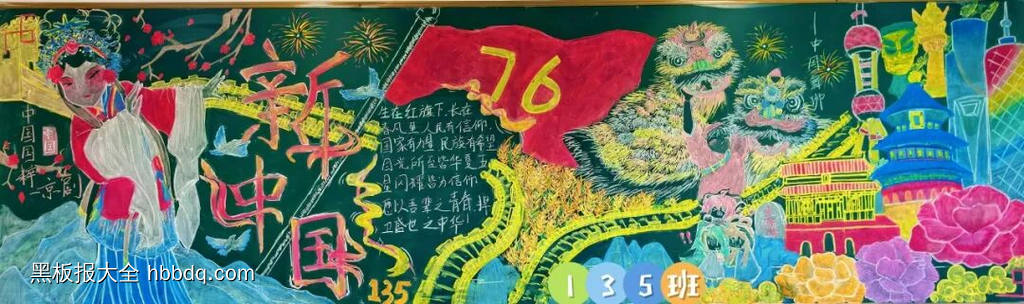 中国国粹
—京剧
新中国
76
生在红旗下,长在
春风里,人民有信仰,
国家有力量,民族有希望
目光所至皆华夏,五
星闪耀皆为信仰
愿以吾辈之青春,捍
卫盛世之中华!
135
135班
黑板报大全 hbbdq.com